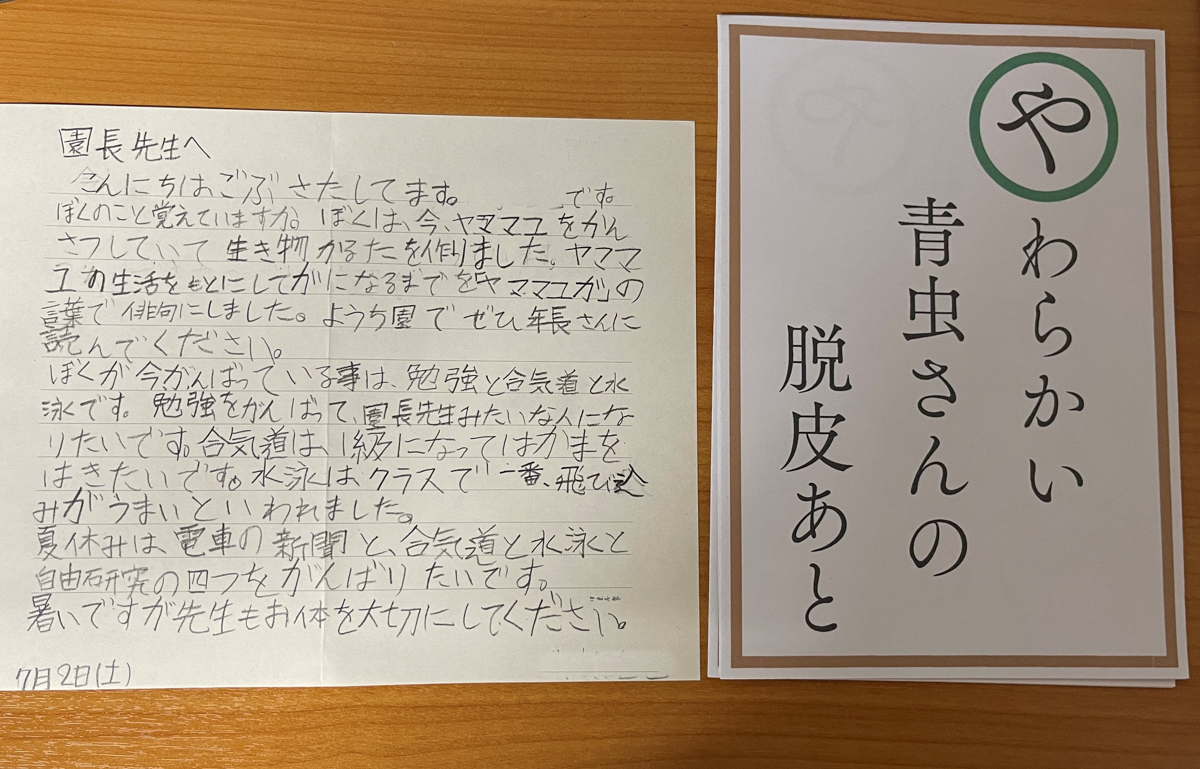 園長先生へ
こんにちは、ごぶさたしてます。 です。
ぼくのこと覚えていますか。ぼくは、今、ヤママユをかん
さつしていて生き物かるたを作りました。ヤママ
ユの生活をもとにしてがになるまでを「ヤママユガ」の
言葉で俳句にしました。ようち園でぜひ年長さんに
読んでください。
ぼくが今がんばっている事は、勉強と合気道と水
泳です。勉強をがんばって、園長先生みたいな人にな
りたいです。合気道は、1級になってはかまを
はきたいです。水泳はクラスで一番、飛び込
みがうまいといわれました。
夏休みは、電車の新聞と、合気道と水泳と
自由研究の四つをがんばりたいです。
暑いですが先生もお体を大切にしてください。
7月2日(土)
やわらかい
青虫さんの
脱皮あと